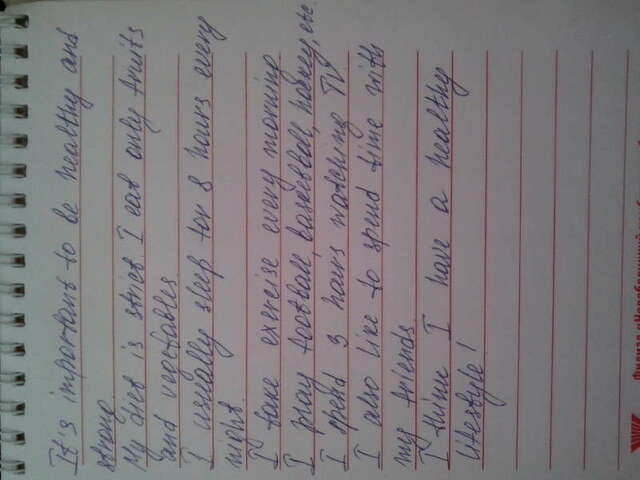 It's important to be healthy and
strong.
My diet is strict I eat only fruits
and vegetables
I usually sleep for 8 hours every
night.
I take exercise every morning
I play football, basketball, hockey, etc.
I spend 3 hours watching TV
I also like to spend time with
my friends.
I think I have a healthy
lifestyle!